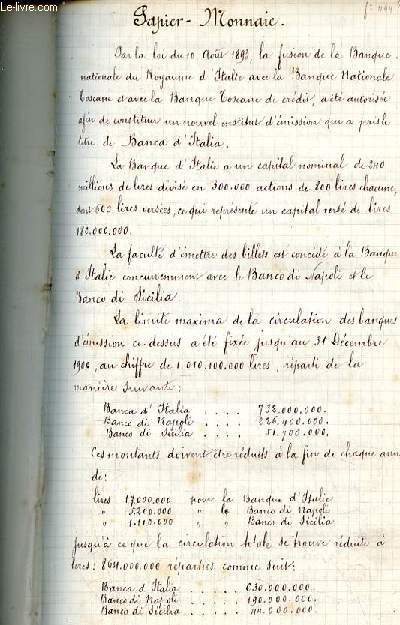 Le-Livre.com
Papier-Monnaie.
Par la loi du 10 Août 1893 la fusion de la Banque
nationale du Royaume d'Italie avec la Banque Nationale
Toscane et avec la Banque Toscane de crédit, a été autorisée
afin de constituer un nouvel institut d'émission qui a pris le
titre de Banca d'Italia.
La Banque d'Italie a un capital nominal de 240
millions de lires divisé en 300.000 actions de 800 lires chacune,
dont 600 lires versées, ce qui représente un capital versé de lires
180.000.000.
La faculté d'émettre des billets est concédé à la Banque
d'Italie concurremment avec le Banco di Napoli et le
Banco di Sicilia.
La limite maxima de la circulation des banques
d'émission ce-dessus a été fixée jusqu'au 31 Décembre
1906, au chiffre de 1.010.100.000 lires, réparti de la
manière suivante:
Banca d'Italia . . . . 732.000.000.
Banco di Napoli . . . . 226.400.000.
Banco di Sicilia . . . . 51.700.000.
Ces montants doivent être réduits à la fin de chaque
de:
lires 17.000.000 pour la Banque d'Italie
" 5.200.000 " le Banco di Napoli
" 1.110.000 " " Banco di Sicilia
jusqu'à ce que la circulation totale se trouve réduite à
lires: 864.000.000 réparties comme suit:
Banca d'Italia . . . . 630.000.000.
Banco di Napoli . . . . 190.000.000.
Banco di Sicilia . . . . 44.000.000.